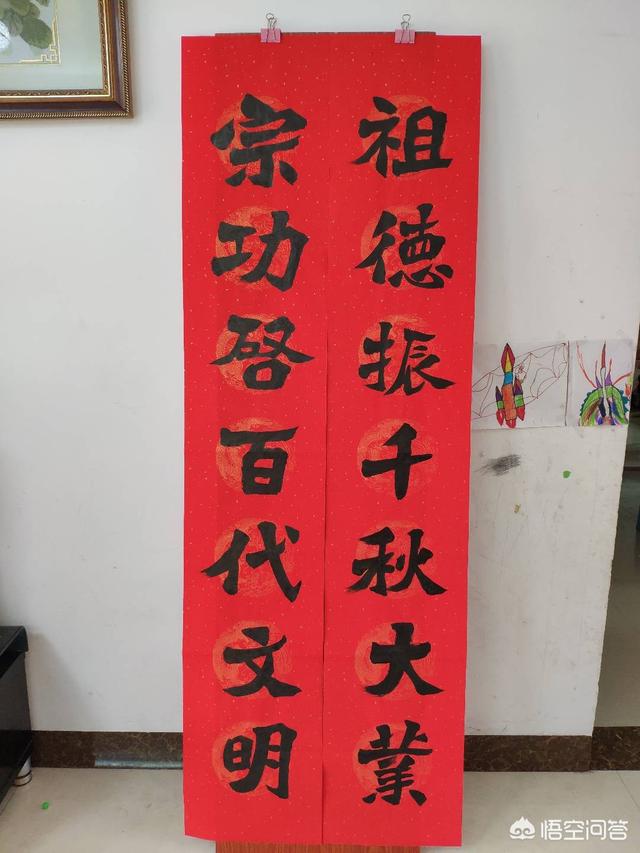 祖德振千秋大業
宗功啓百代文明
悟空问答